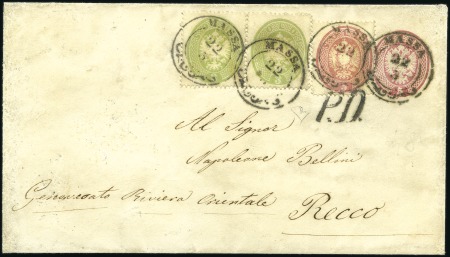 MASSA MASSA MASSA MASSA
22 22 22 22
P.D.
Al Signor
Napoleone Bellini
Genovesato Riviera Orientale Recco